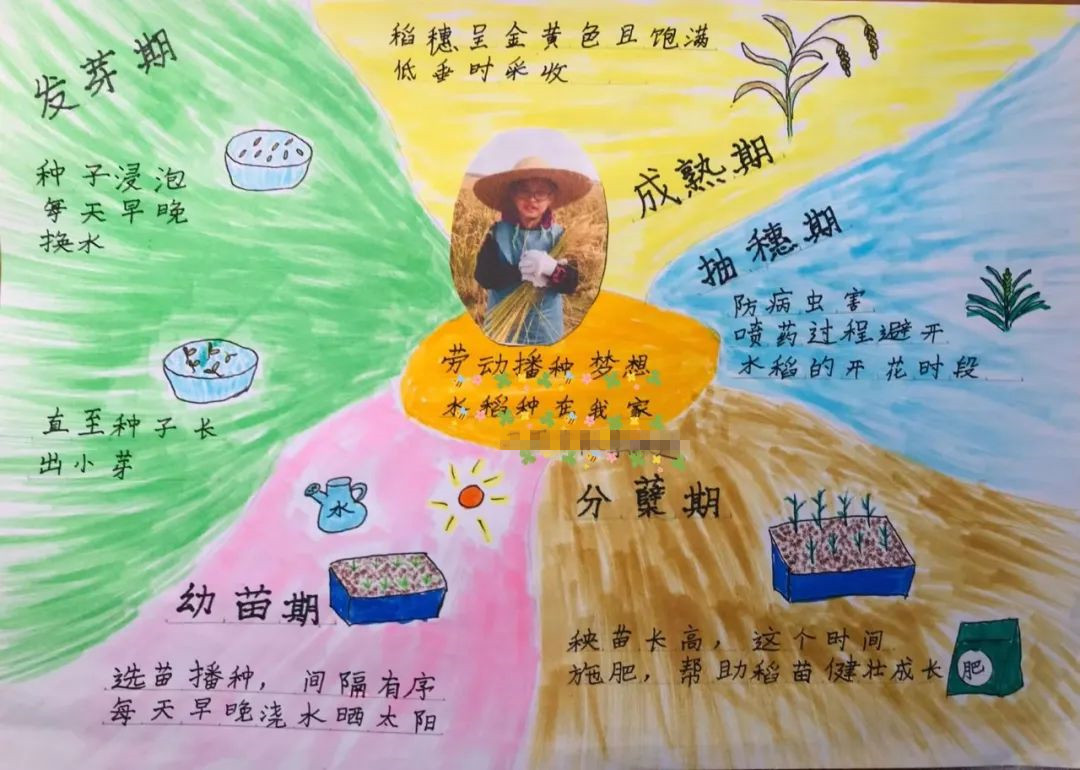 发芽期
种子浸泡
每天早晚
换水
直至种子长
出小芽
幼苗期
水
选苗播种，间隔有序
每天早晚浇水晒太阳
分蘖期
秧苗长高，这个时间
施肥，帮助稻苗健壮成长
肥
抽穗期
防病虫害
喷药过程避开
水稻的开花时段
成熟期
稻穗呈金黄色且饱满
低垂时采收
劳动播种梦想
水稻种在我家